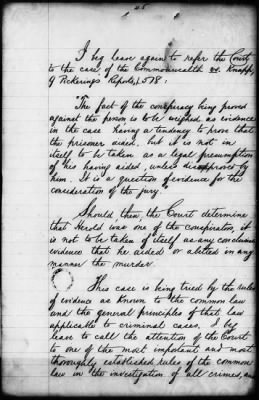 45
I beg leave again to refer the Court
to the case of the Commonwealth vs. Knapp
9 Pickering's Reports, p. 578:
"The fact of the conspiracy being proved
against the person is to be weighed as evidence
in the case having a tendency to prove that
the prisoner aided, but it is not in
itself to be taken as a legal presumption
of his having aided, unless disapproved by
him. It is a question of evidence for the
consideration of the jury."
Should then the Court determine
that Herold was one of the conspirators, it
is not to be taken of itself as any conclusive
evidence that he aided or abetted in any
manner the murder.
This case is being tried by the rules
of evidence as known to the common law
and the general principles of that law
applicable to criminal cases. I beg
leave to call the attention of the Court
to one of the most important and most
thoroughly established rules of the common
law in the investigation of all crimes, and